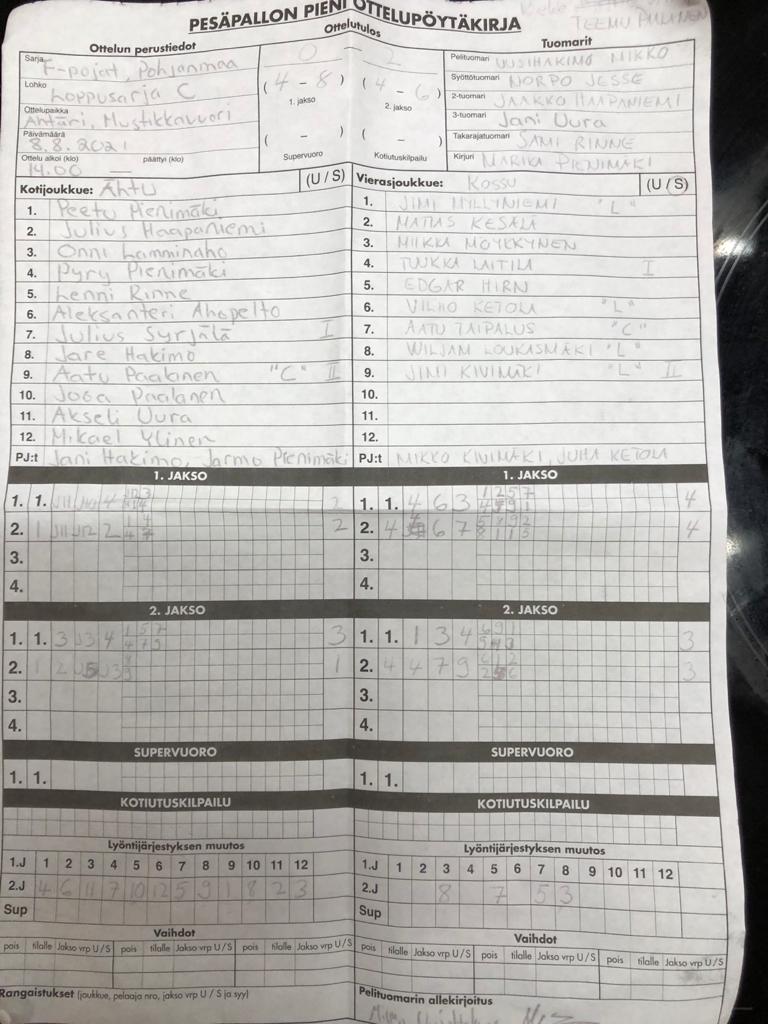 TEEMU
PESÄPALLON PIENI OTTELUPÖYTÄKIRJA
Ottelun perustiedot
Sarja F-pojat, Pohjanmaa
Lohko Loppusarja C
Ottelupaikka Ähtäri, Mustikkavuori
Päivämäärä 8.8.2021
Ottelu alkoi (klo) päättyi (klo)
14.00 —
Ottelutulos
0 — 2
(4 - 8) (4 - 6)
1. jakso 2. jakso
( - ) ( - )
Supervuoro Kotiutuskilpailu
Tuomarit
Pelituomari UUSIHAKIMO MIKKO
Syöttötuomari NORPO JESSE
2-tuomari JAAKKO HAAPANIEMI
3-tuomari Jani Uura
Takarajatuomari SAMI RINNE
Kirjuri MARIKA PIENIMÄKI
Kotijoukkue: Ähtu (U / S)
1. Peetu Pienimäki
2. Julius Haapaniemi
3. Onni Lamminaho
4. Pyry Pienimäki
5. Lenni Rinne
6. Aleksanteri Ahopelto
7. Julius Syrjälä I
8. Jare Hakimo
9. Aatu Paalanen "C" II
10. Josa Paalanen
11. Akseli Uura
12. Mikael Ylinen
PJ:t Jani Hakimo, Jarmo Pienimäki
Vierasjoukkue: Kossu (U / S)
1. JIMI MYLLYNIEMI "L"
2. MATIAS KESÄLÄ
3. MIIKKA MÖYKKYNEN
4. TUUKKA LAITILA I
5. EDGAR HIRN
6. VILHO KETOLA "L"
7. AATU TAIPALUS "C"
8. WILJAM LOUKASMÄKI "L"
9. JIMI KIVIMÄKI "L" II
10.
11.
12.
PJ:t MIKKO KIVIMÄKI, JUHA KETOLA
1. JAKSO
1. 1. 2
2. 2
3.
4.
1. JAKSO
1. 1. 4 6 3 4
2. 4 6 7 4
3.
4.
2. JAKSO
1. 1. 3 J3 4 3
2. 1 2 1
3.
4.
2. JAKSO
1. 1. 1 3 4 3
2. 4 4 7 9 3
3.
4.
SUPERVUORO
1. 1.
SUPERVUORO
1. 1.
KOTIUTUSKILPAILU
KOTIUTUSKILPAILU
Lyöntijärjestyksen muutos
1.J 1 2 3 4 5 6 7 8 9 10 11 12
2.J 4 6 11 7 10 12 5 9 1 8 2 3
Sup
Lyöntijärjestyksen muutos
1.J 1 2 3 4 5 6 7 8 9 10 11 12
2.J 8 7 5 3
Sup
Vaihdot
pois tilalle Jakso vrp U / S pois tilalle Jakso vrp U / S pois tilalle Jakso vrp U / S
Vaihdot
pois tilalle Jakso vrp U / S pois tilalle Jakso vrp U / S pois tilalle Jakso vrp U / S
Rangaistukset (joukkue, pelaaja nro, jakso vrp U / S ja syy)
Pelituomarin allekirjoitus